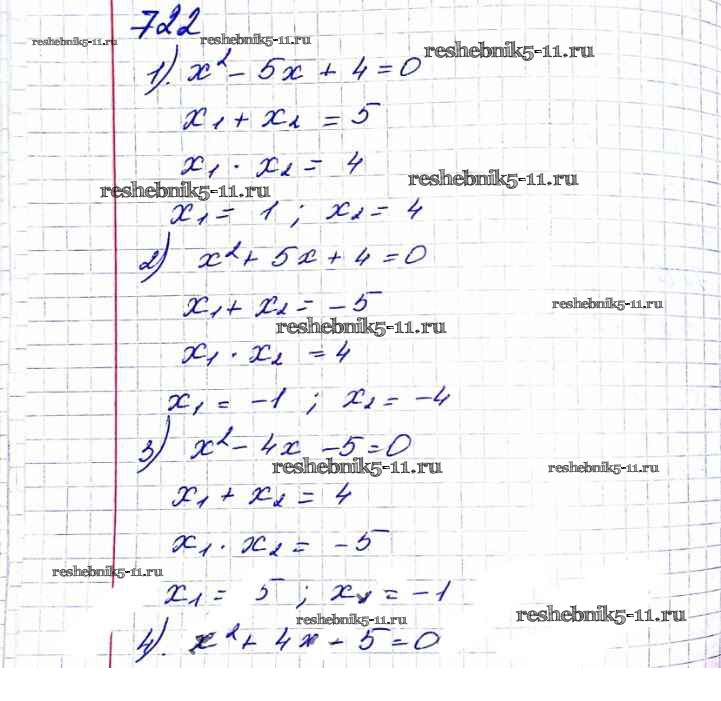 722
reshebnik5-11.ru reshebnik5-11.ru reshebnik5-11.ru
1). x² - 5x + 4 = 0
x₁ + x₂ = 5
x₁ · x₂ = 4
reshebnik5-11.ru reshebnik5-11.ru
x₁ = 1 ; x₂ = 4
2) x² + 5x + 4 = 0
x₁ + x₂ = -5
reshebnik5-11.ru
reshebnik5-11.ru
x₁ · x₂ = 4
x₁ = -1 ; x₂ = -4
3) x² - 4x - 5 = 0
reshebnik5-11.ru reshebnik5-11.ru
x₁ + x₂ = 4
x₁ · x₂ = -5
reshebnik5-11.ru
x₁ = 5 ; x₂ = -1
reshebnik5-11.ru reshebnik5-11.ru
4). x² + 4x - 5 = 0